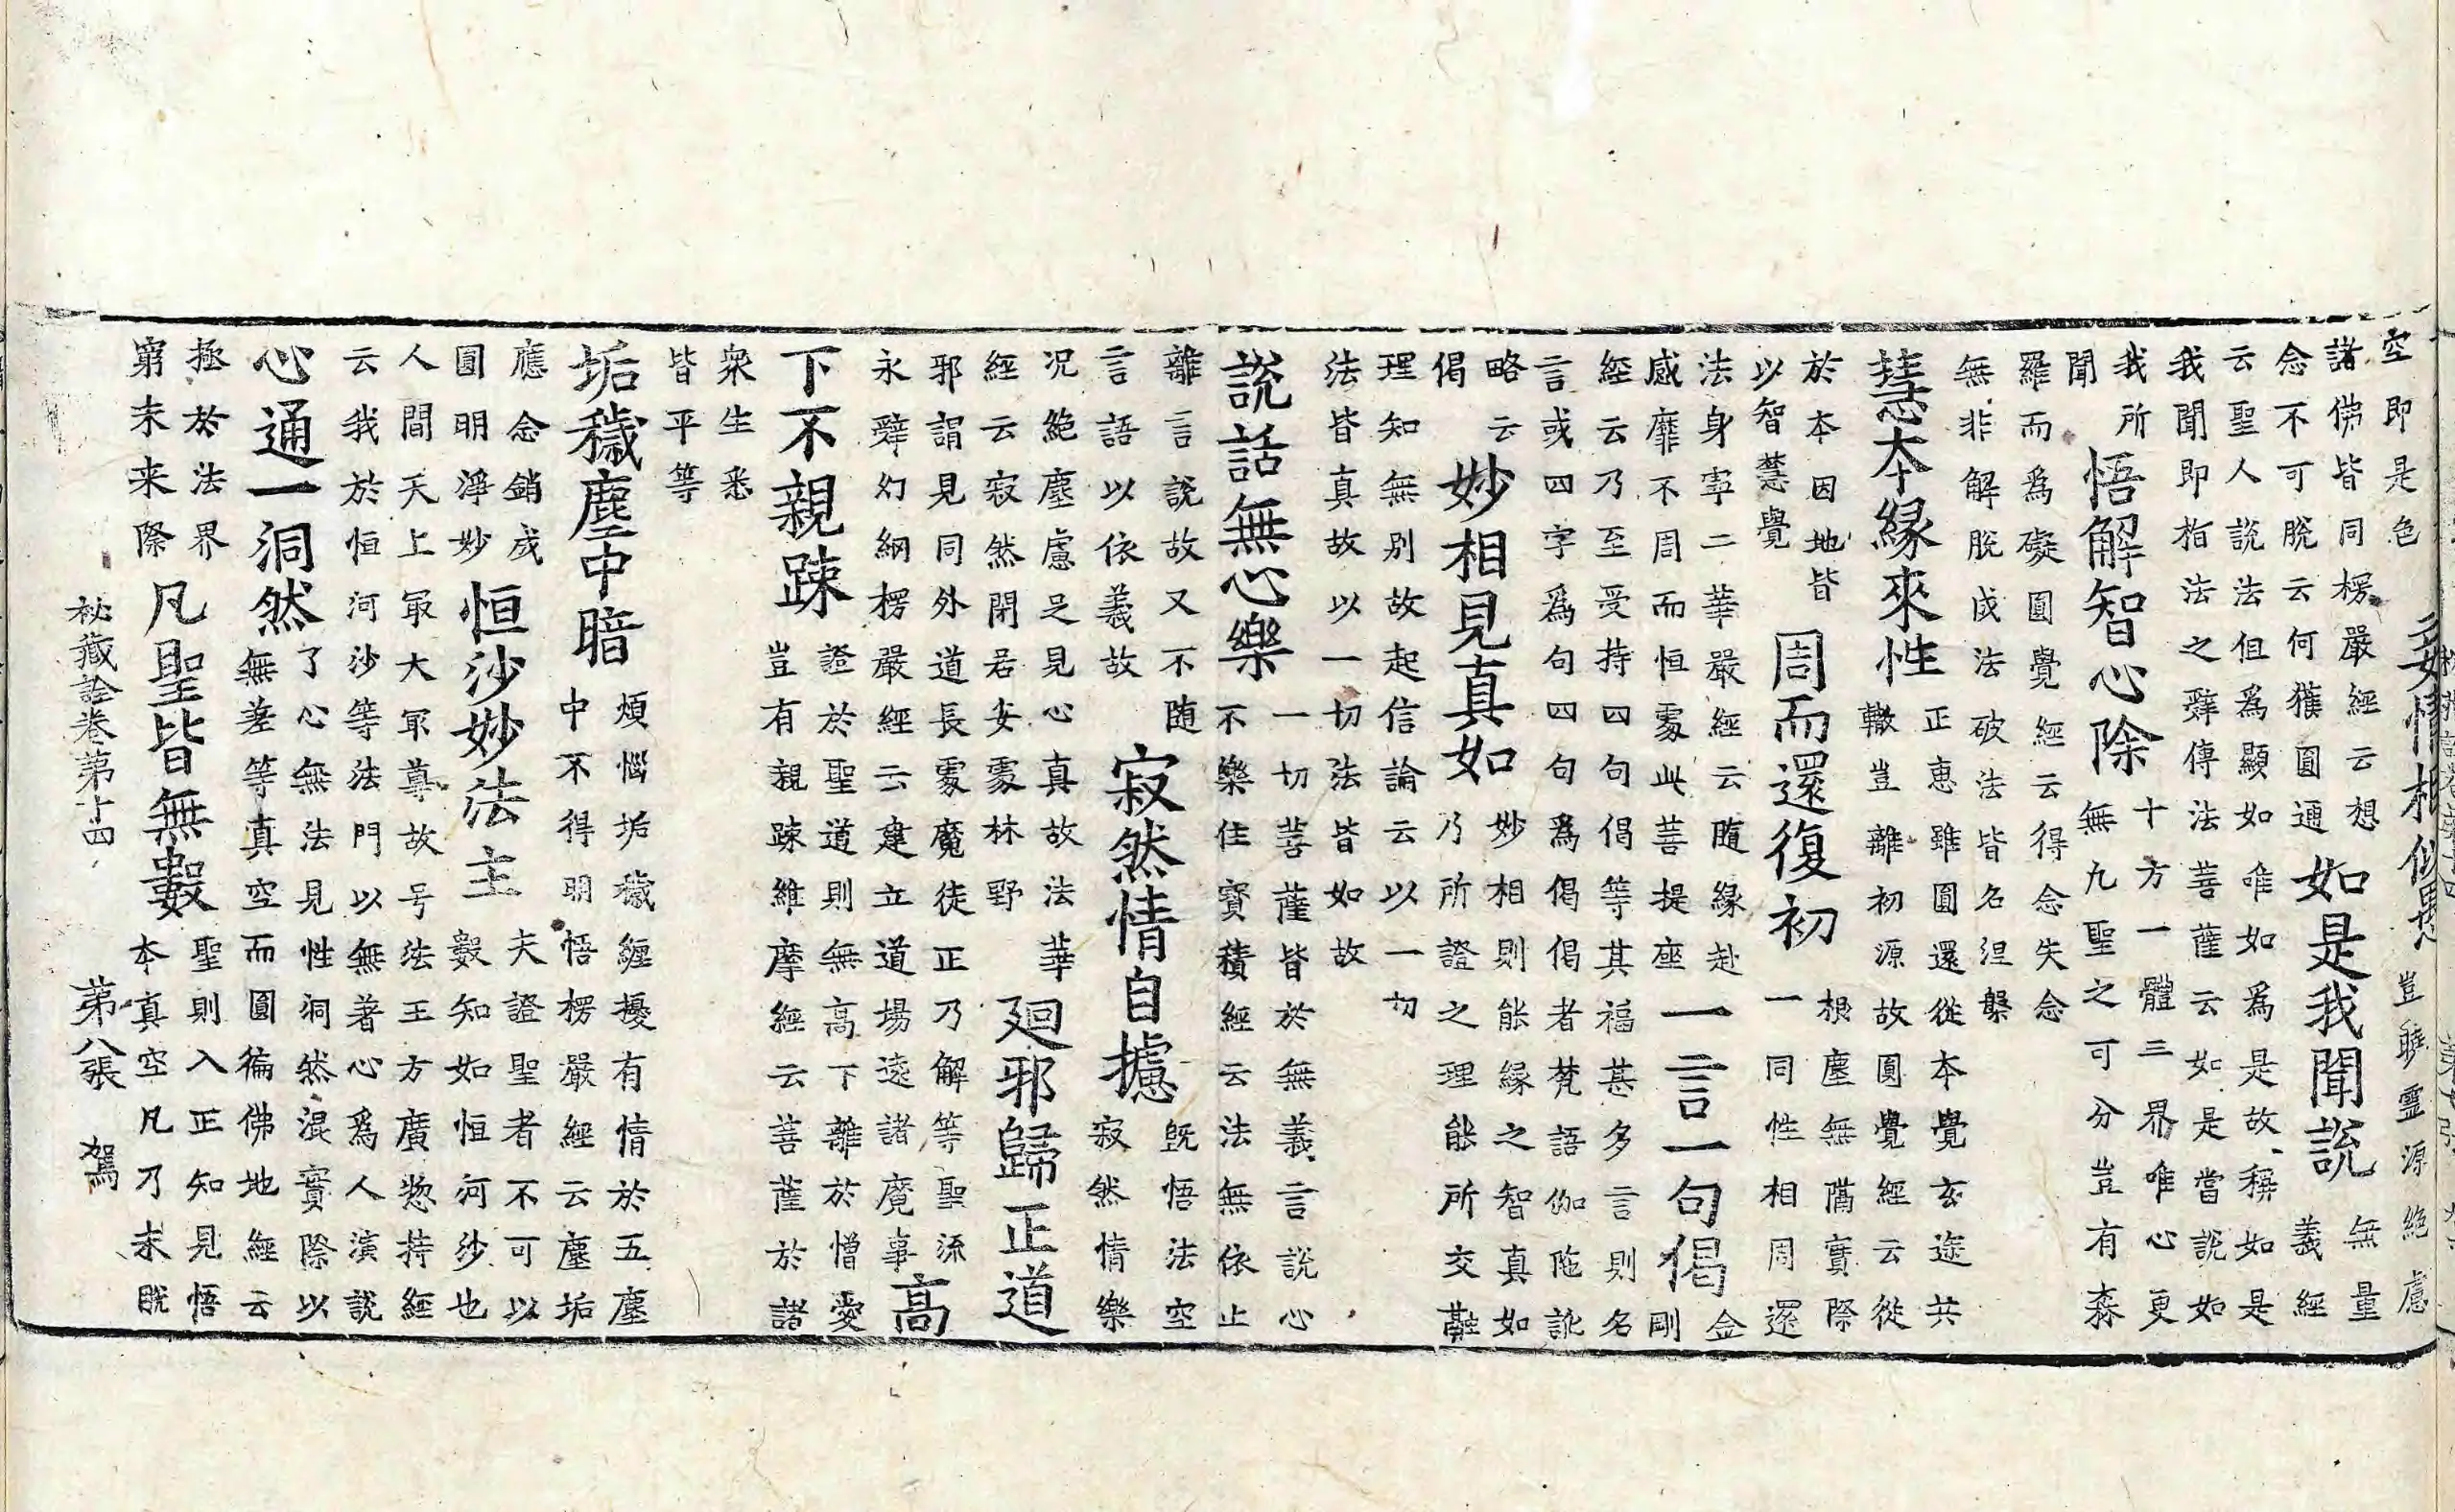 空即是色
妄情相似愚
豈
靈源絕慮
諸佛皆同楞嚴經云想
念不可脫云何獲圓通
如是我聞說
無量
義經
云聖人說法但為顯如唯如為是故稱如是
我聞即指法之辤傳法菩薩云如是當說如
我所
聞
悟解智心除
十方一體三界唯心更
無九聖之可分豈有森
羅而為礙圓覺經云得念失念
無非解脫成法破法皆名涅槃
慧本緣來性
正惠雖圓還從本覺玄迹共
轍豈離初源故圓覺經云從
於本因地皆
以智慧覺
周而還復初
根塵無隔實際
一同性相周還
法身寧二華嚴經云隨緣赴
感靡不周而恒處此菩提座
一言一句偈
金
剛
經云乃至受持四句偈等其福甚多言則名
言或四字為句四句為偈偈者梵語伽陁訛
略云
偈
妙相見真如
妙相則能緣之智真如
乃所證之理能所交融
理知無別故起信論云以一切
法皆真故以一切法皆如故
說話無心樂
一切菩薩皆於無義言說心
不樂住寶積經云法無依止
離言說故又不随
言語以依義故
寂然情自攄
既悟法空
寂然情樂
况絕塵慮足見心真故法華
經云寂然閑君安處林野
廻邪歸正道
邪謂見同外道長處魔徒正乃解等聖流
永辤幻網楞嚴經云建立道場遠諸魔事
高
下不親踈
證於聖道則無高下離於憎愛
豈有親踈維摩經云菩薩於諸
衆生悉
皆平等
垢穢塵中暗
煩惱垢穢纏擾有情於五塵
中不得明悟楞嚴經云塵垢
應念銷成
圓明淨妙
恒沙妙法主
夫證聖者不可以
數知如恒河沙也
人間天上㝡大㝡尊故号法王方廣揔持經
云我於恒河沙等法門以無著心為人演說
心通一洞然
了心無法見性洞然混實際以
無差等真空而圓徧佛地經云
極於法界
窮未来際
凡聖皆無數
聖則入正知見悟
本真空凡乃未脫
秘藏詮卷第十四
第八張
駕